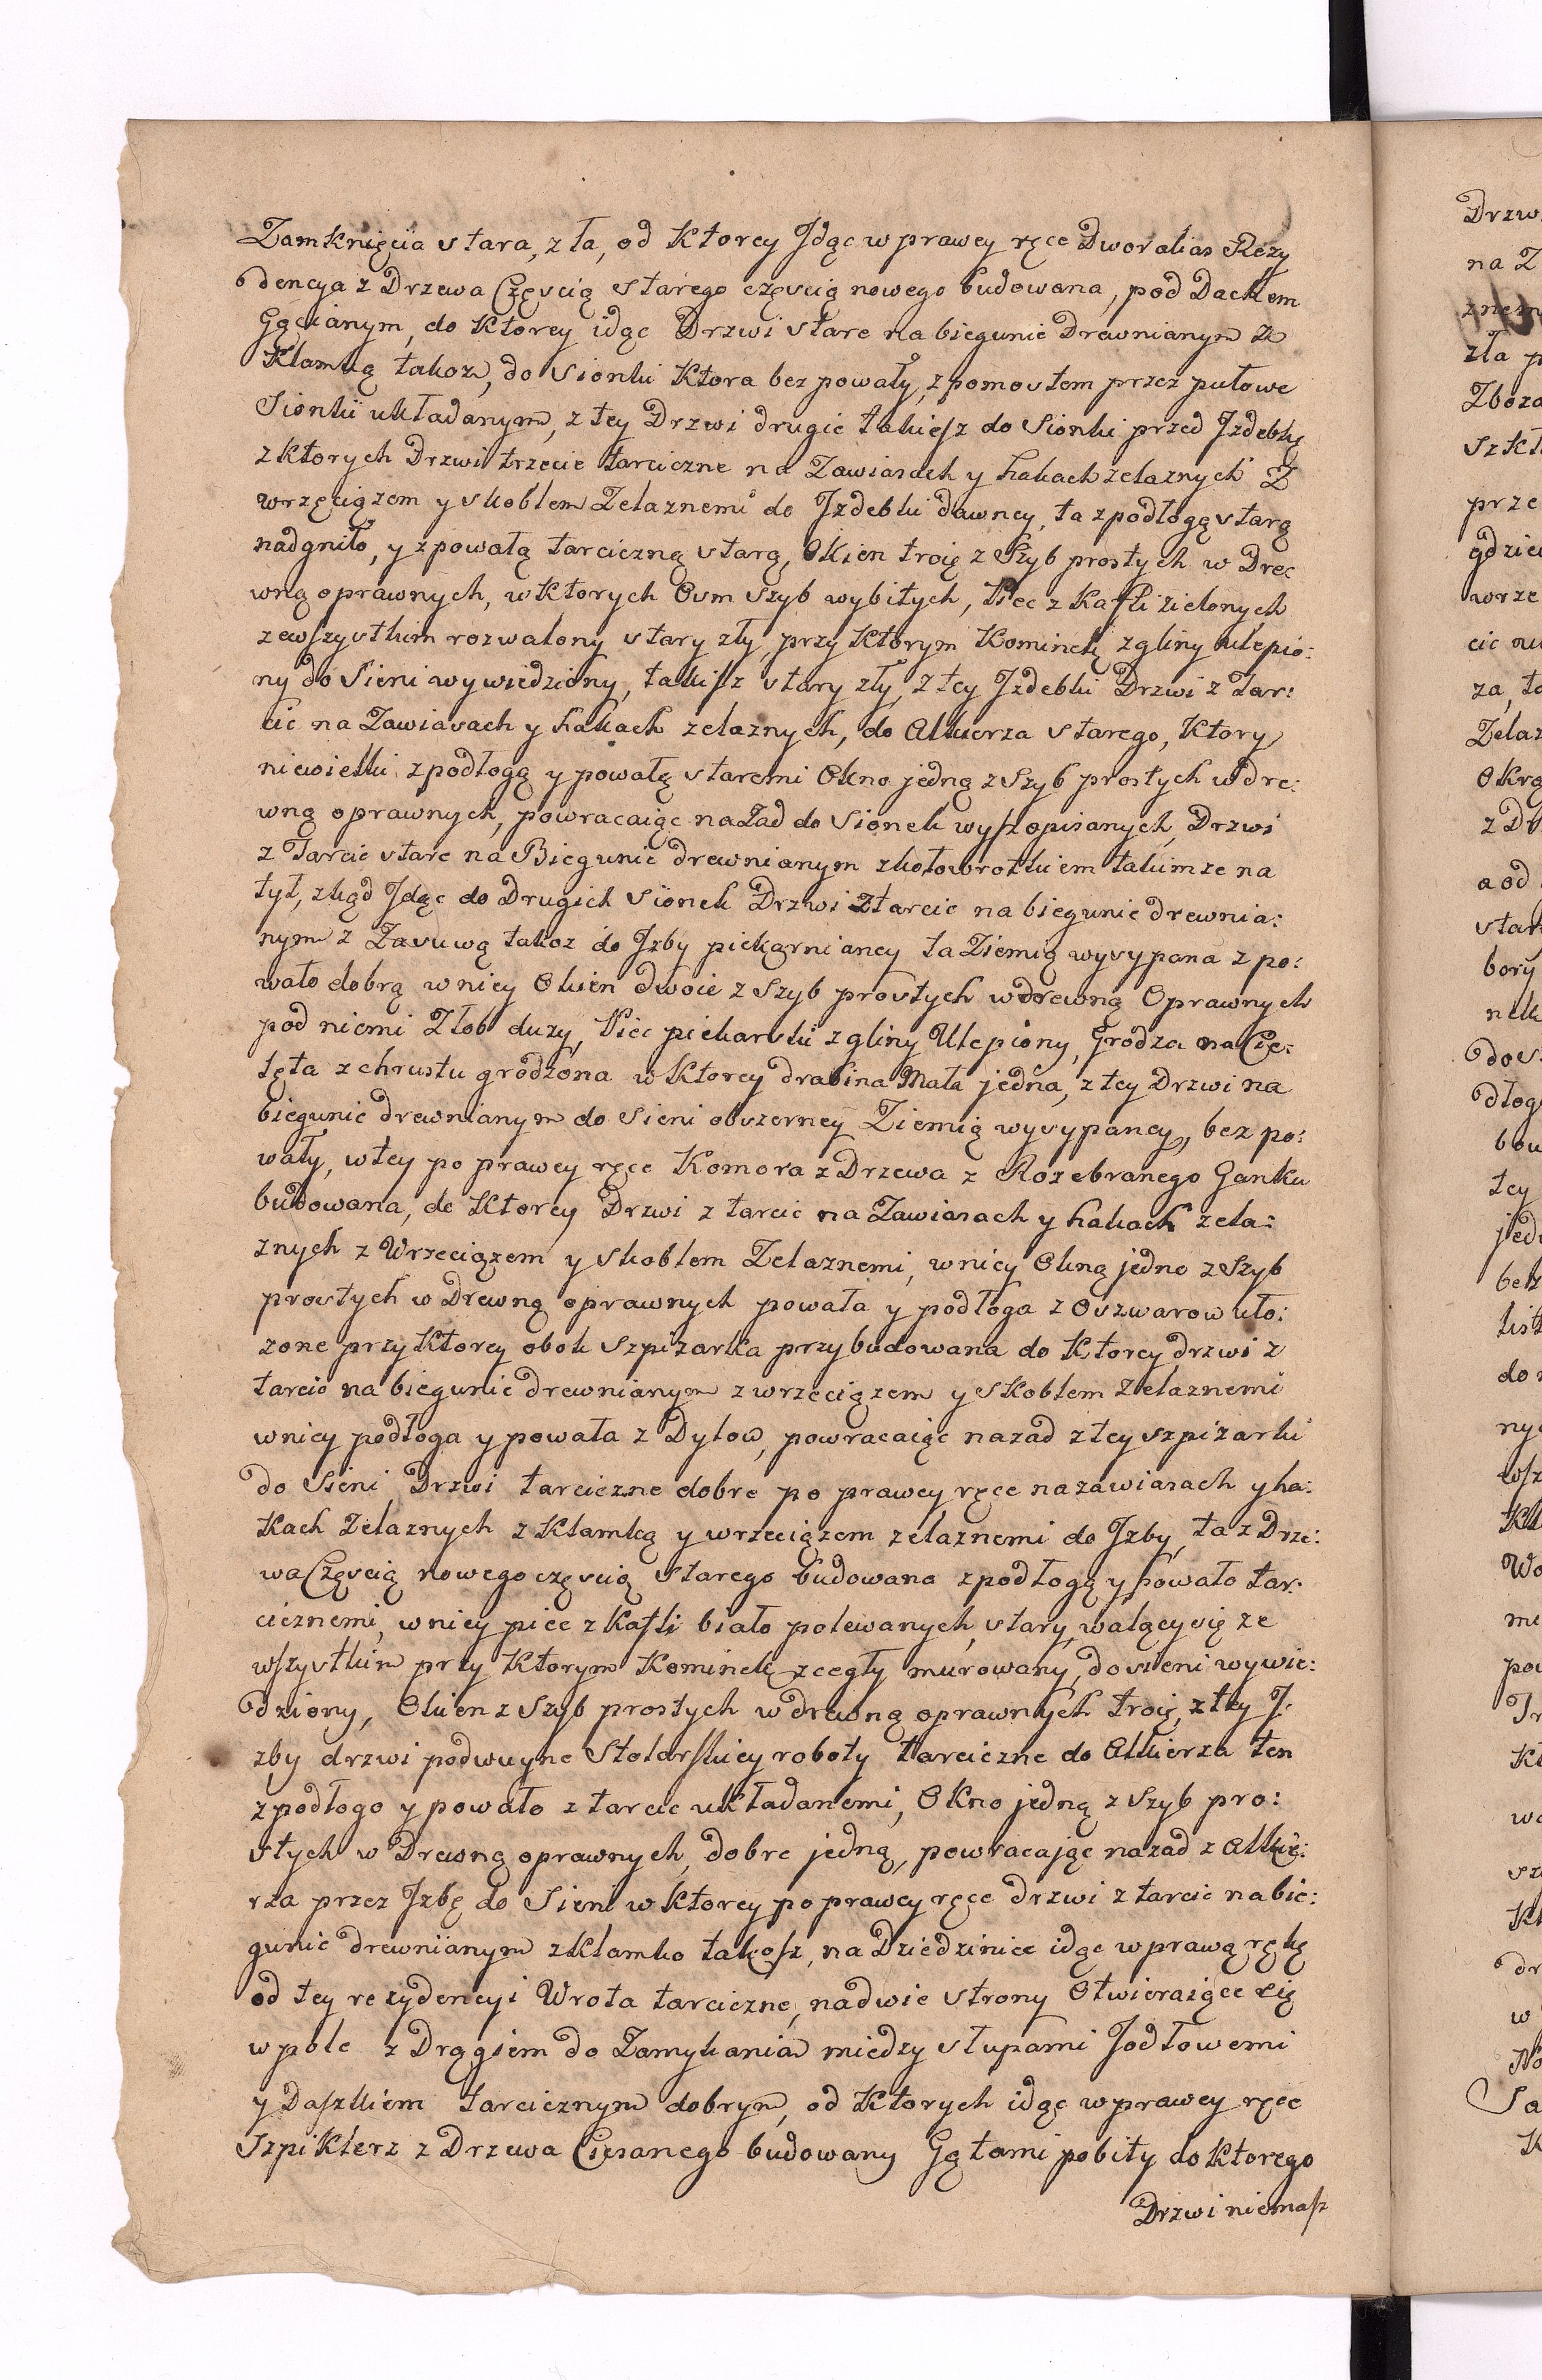 Zamknięcia stara, zła, od Ktorey Jdąc w prawey ręce Dwor alias Rezy
dencya z Drzewa Częscią starego częscią nowego budowana, pod Dachem
Gącianym, do Ktorey idąc Drzwi stare na biegunie Drewnianym z
Klamką takoz, do sionki Ktora bez powały, z pomostem przez pułowe
Sionki układanym, z tey Drzwi drugie takiesz do Sionki przed Jzdebką
z ktorych Drzwi trzecie tarciczne na Zawiasach y hakach zelaznych Z
wrzeciązem y skoblem Zelaznemi do Jzdebki dawney, ta z podłogą starą
nadgniło, y z powałą tarciczną starą, Okien troię z Szyb prostych w Dre
wną oprawnych, w Ktorych Osm szyb wybitych, Piec z Kafli zielonych
ze wszystkim rozwalony stary zły, przy Ktorym Kominek z gliny ulepio:
ny do Sieni wywiedziony, takisz stary zły, z tey Jzdebki Drzwi z Tar:
cic na Zawiasach y hakach zelaznych, do Alkierza starego, Ktory
niewielki z podłogą y powałą staremi Okno jedną z Szyb prostych w dre:
wną oprawnych, powracaiąc na Zad do Sionek wysz opisanych, Drzwi
z Tarcic stare na Biegunie drewnianym z kołowrotkiem takimze na
tył, zkąd Jdąc do Drugich Sionek Drzwi z tarcic na biegunie drewnia:
nym z Zasuwą takoz do Jzby piekarnianey ta Ziemią wysypana z po:
wało dobrą w niey Okien dwoie z Szyb prostych w drewną Oprawnych
pod niemi Złob duzy, Piec piekarski z gliny Ulepiony, Grodza na Cie:
lęta z chrustu grodzona w Ktorey drabina Mała jedna, z tey Drzwi na
biegunie drewnianym do Sieni obszerney Ziemią wysypaney, bez po:
wały, w tey po prawey ręce Komora z Drzewa z Rozebranego Ganku
budowana, do Ktorey Drzwi z tarcic na Zawiasach y hakach zela:
znych z Wrzeciązem y skoblem Zelaznemi, w niey Okną jedno z Szyb
prostych w Drewną oprawnych powała y podłoga z Oszwarow uło:
zone przy Ktorey obok Szpizarka przybudowana do Ktorey drzwi z
tarcic na biegunie drewnianym z wrzeciązem y Skoblem Zelaznemi
w niey podłoga y powała z Dylow, powracaiąc nazad z tey szpizarki
do Sieni Drzwi tarciczne dobre po prawey ręce na zawiasach y ha:
Kach Zelaznych z Klamką y wrzeciązem zelaznemi do Jzby, ta z Drze:
wa Częscią nowego częscią starego budowana z podłogą y powało tar:
cicznemi, w niey piec z Kafli biało polewanych, stary, walący się ze
wszystkim przy Ktorym Kominek z cegły murowany, do sieni wywie:
dziony, Okien z Szyb prostych w drewną oprawnych troię, z tey J:
zby drzwi podwuyne Stolarskiey roboty tarciczne do Alkierza ten
z podłogo y powało z tarcic układanemi, Okno jedną z Szyb pro:
stych w Drewną oprawnych, dobre jedną, powracając nazad z Alkie:
rza przez Jzbę do Sieni w Ktorey po prawey ręce drzwi z tarcic na bie:
gunie drewnianym z Klamko takosz, na Dziedzinice idąc w prawą rękę
od tey rezydencyi Wrota tarciczne, na dwie strony Otwieraiące się
w pole z Drągiem do Zamykania miedzy słupami Jodłowemi
y Daszkiem tarcicznym dobrym, od Ktorych idąc w prawey ręce
Szpiklerz z Drzewa Ciesanego budowany Gątami pobity do Ktorego
Drzwi niemasz